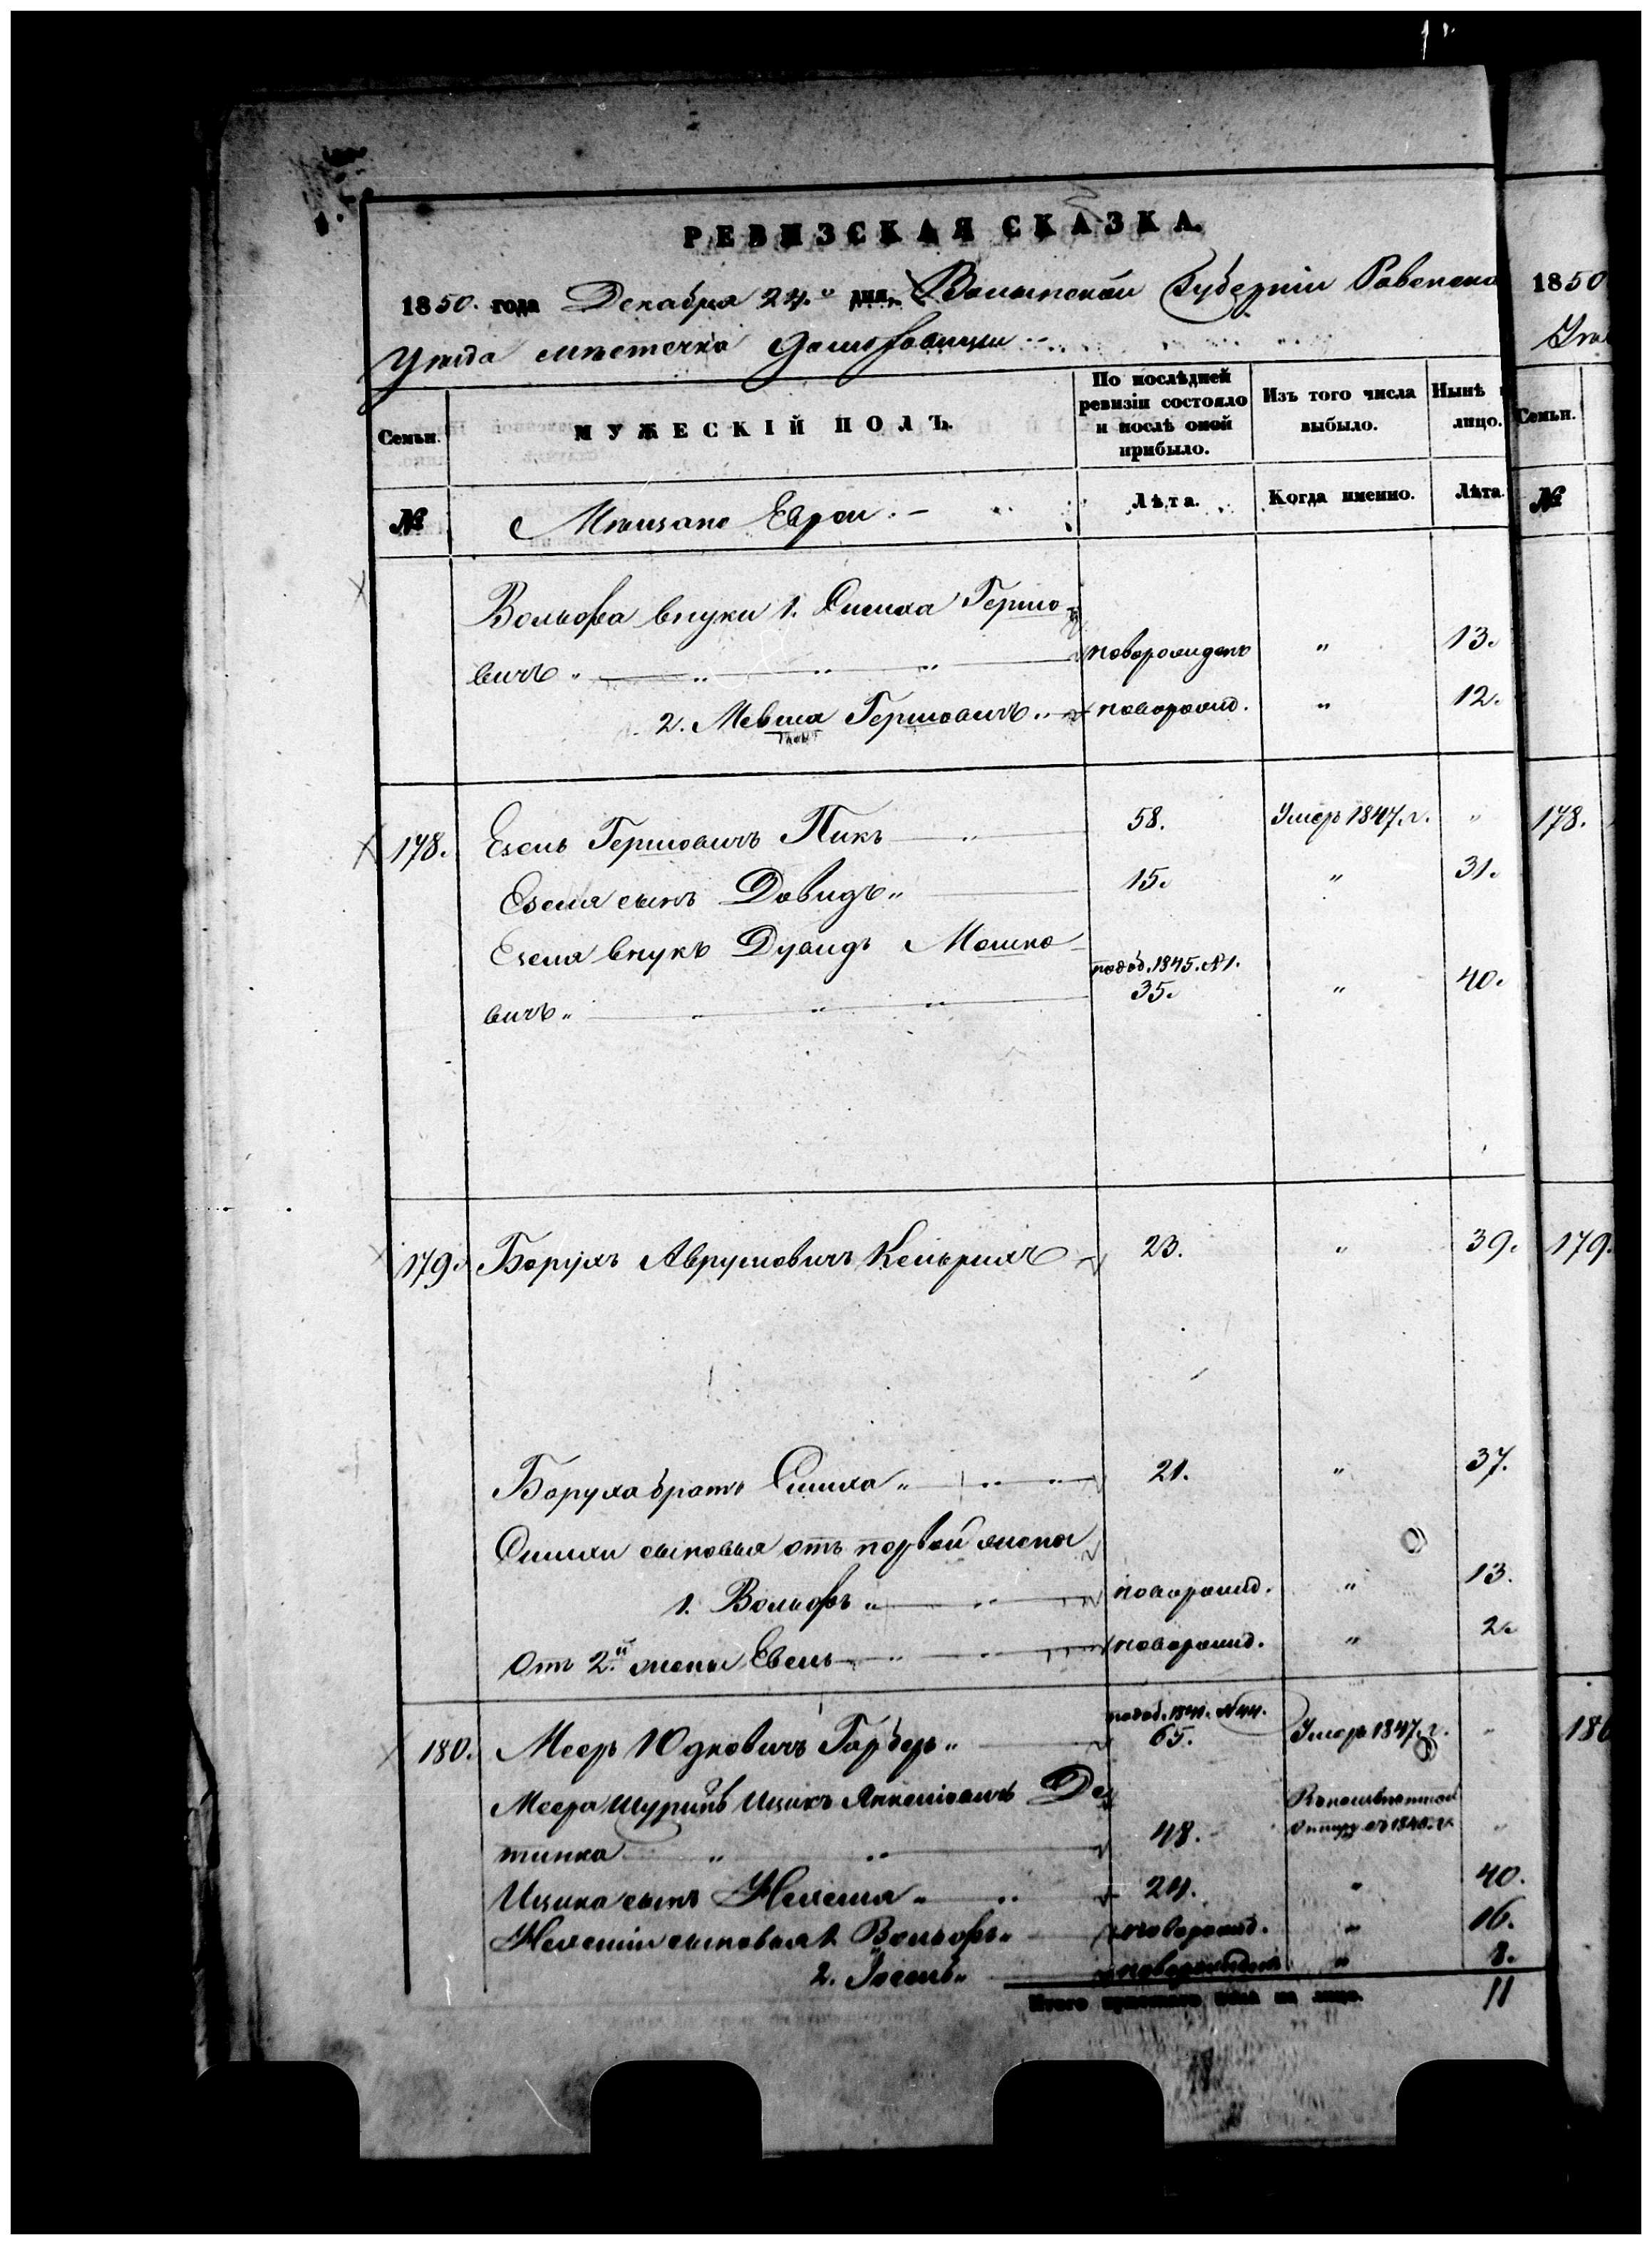 РЕВИЗСКАЯ СКАЗКА.
1850. года Декабря 24.го дня, Волынской Губерніи Ровенско
Уѣзда мѣстечка Домбровицы
Семьи.
МУЖЕСКІЙ ПОЛЪ.
По послѣдней ревизіи состояло и послѣ оной прибыло.
Изъ того числа выбыло.
Нынѣ
лицо.
№
Мѣщане Евреи
Лѣта.
Когда именно.
Лѣта.
Вольфа внуки 1. Симха Гершо-
вичъ новорожденъ " 13.
2. Мевша Гершовичъ новорожд. " 12.
178. Езель Гершовичъ Пикъ 58. Умеръ 1847. г. "
Езеля сынъ Довидъ 15. " 31.
Езеля внукъ Дувидъ Мошко
вичъ подоб. 1845. №1. 35. " 40.
179. Борухъ Аврумовичъ 23. " 39.
Боруха братъ Симха 21. " 37.
Симхи сыновья отъ первой жены
1. Вольфъ новорожд. " 13.
Отъ 2.й жены новорожд. " 2.
180. Мееръ Юдковичъ 65. Умеръ 1847. г. "
Меера Шуринъ Ицикъ Янкелiовичъ Де
тинка 48. "
Ицика сынъ 24. " 40.
сыновья 1. Вольфъ новорожд. " 16.
2. Іосель новорожденъ " 8.
Итого мужескаго пола на лицо. 11
1850
Семьи.
№
178.
179.
180